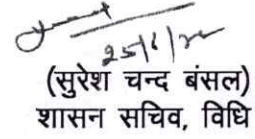 25/6/20
(सुरेश चन्द बंसल)
शासन सचिव, विधि